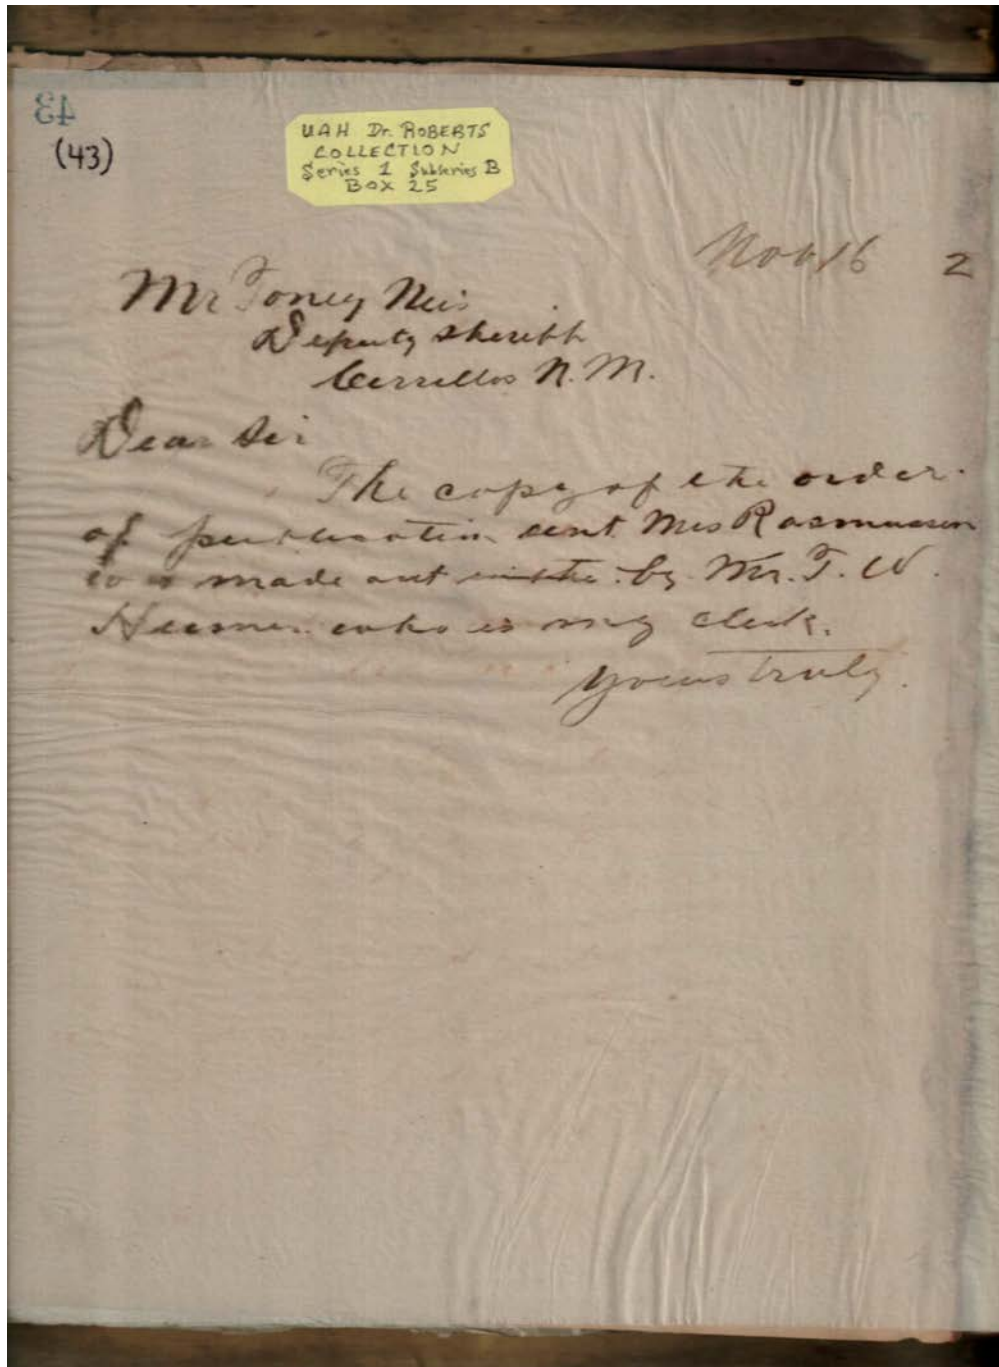 43
(43)
UAH Dr. ROBERTS
COLLECTION
Series 1 Subseries B
BOX 25
Nov 16 2
Mr Toney Neis
Deputy Sheriff
Cerrillos N. M.
Dear Sir
The copy of the order
of publication sent Mrs Rasmussen
was made out by Mr. T. W.
who is my clerk.
Yours truly.